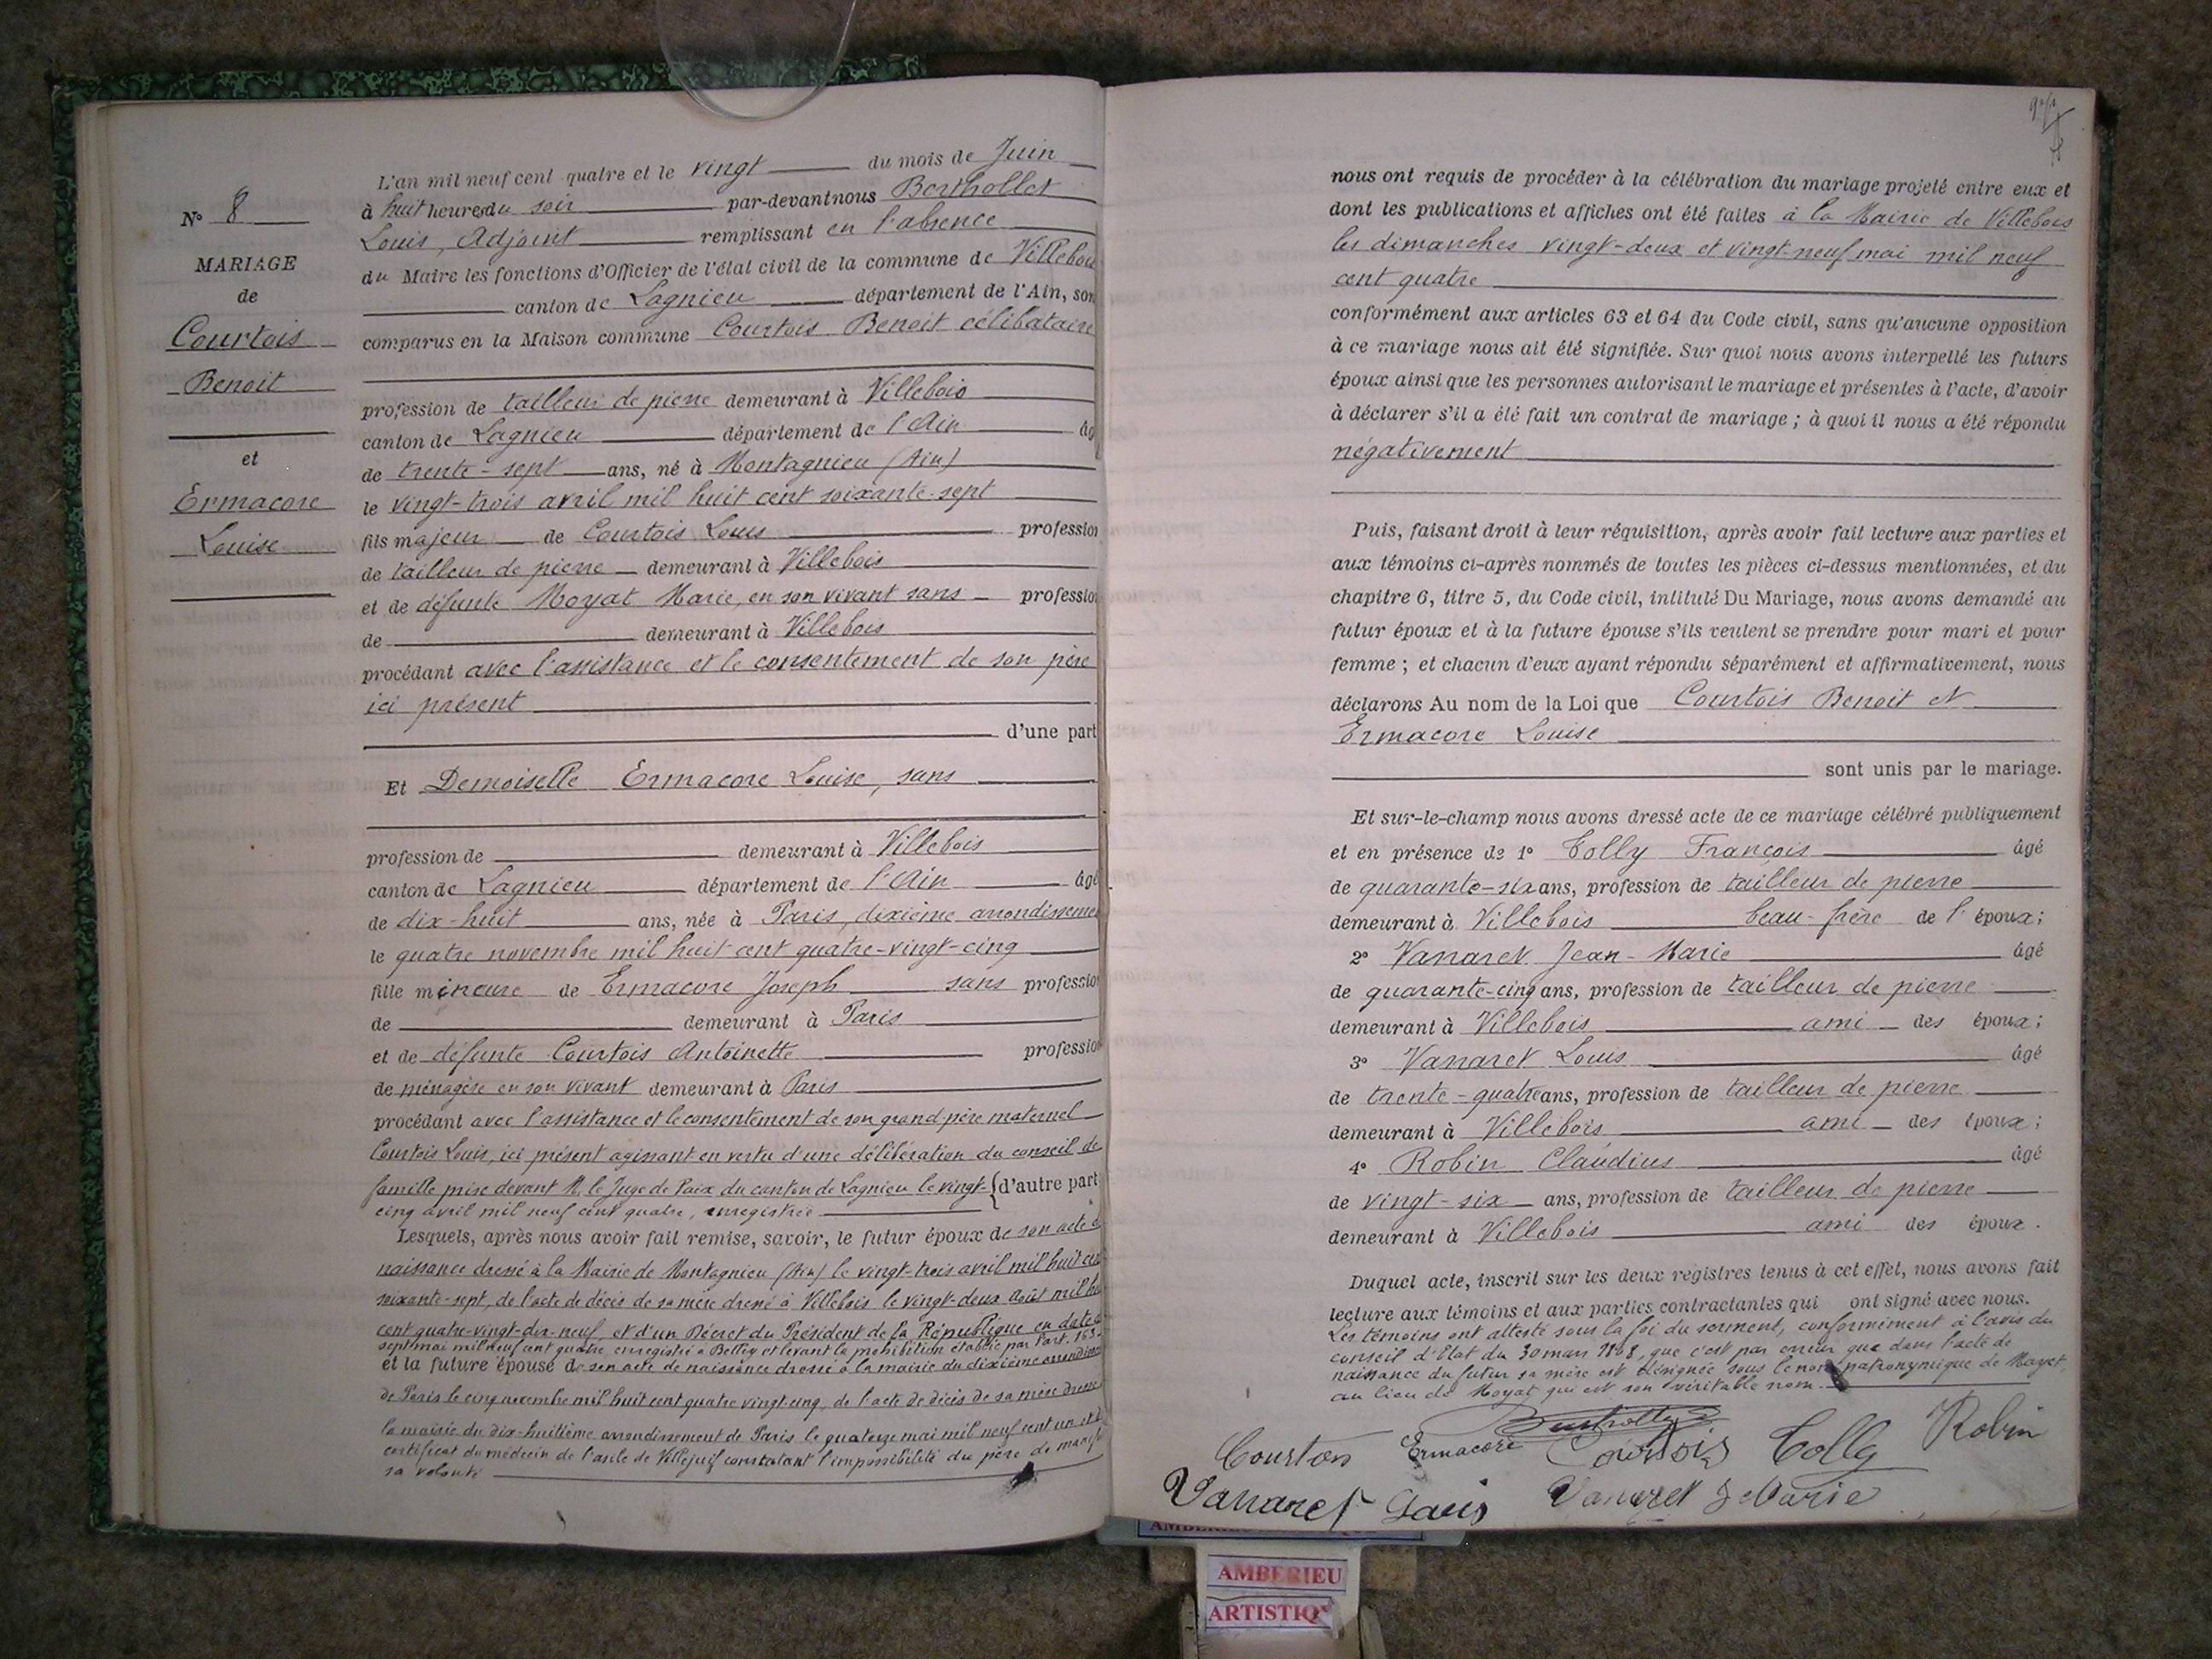 N° 8
MARIAGE
de
Courtois
Benoit
et
Ermacore
Louise
L'an mil neuf cent quatre et le vingt du mois de Juin
à huit heures du soir par-devant nous Berthollet
Louis, Adjoint remplissant en l'absence
du Maire les fonctions d'Officier de l'état civil de la commune de Villebois
canton de Lagnieu département de l'Ain, son
comparus en la Maison commune Courtois Benoit célibataire
profession de tailleur de pierre demeurant à Villebois
canton de Lagnieu département de l'Ain âg
de trente-sept ans, né à Montagnieu (Ain)
le vingt-trois avril mil huit cent soixante-sept
fils majeur de Courtois Louis profession
de tailleur de pierre demeurant à Villebois
et de défunte Moyat Marie, en son vivant sans profession
de demeurant à Villebois
procédant avec l'assistance et le consentement de son père
ici présent
d'une part
Et Demoiselle Ermacore Louise, sans
profession de demeurant à Villebois
canton de Lagnieu département de l'Ain âgé
de dix-huit ans, née à Paris, dixième arrondissement
le quatre novembre mil huit cent quatre-vingt-cinq
fille mineure de Ermacore Joseph sans profession
de demeurant à Paris
et de défunte Courtois Antoinette profession
de ménagère en son vivant demeurant à Paris
procédant avec l'assistance et le consentement de son grand-père maternel
Courtois Louis, ici présent agissant en vertu d'une délibération du conseil de
famille prise devant M. le Juge de Paix du canton de Lagnieu le vingt- { d'autre part
cinq avril mil neuf cent quatre, enregistrée
Lesquels, après nous avoir fait remise, savoir, le futur époux de son acte d
naissance dressé à la Mairie de Montagnieu (Ain) le vingt-trois avril mil huit cent
soixante-sept, de l'acte de décès de sa mère dressé à Villebois le vingt-deux août mil hu
cent quatre-vingt-dix-neuf, et d'un Décret du Président de la République en date d
sept mai mil neuf cent quatre, enregistré à Belley et levant la prohibition établie par l'art. 163
et la future épouse de son acte de naissance dressé à la mairie du dixième arrondisse
de Paris le cinq novembre mil huit cent quatre-vingt-cinq, de l'acte de décès de sa mère dressé
la mairie du dix-huitième arrondissement de Paris le quatorze mai mil neuf cent un et d
certificat du médecin de l'asile de Villejuif constatant l'impossibilité du père de manifes
sa volonté
nous ont requis de procéder à la célébration du mariage projeté entre eux et
dont les publications et affiches ont été faites à la Mairie de Villebois
les dimanches vingt-deux et vingt-neuf mai mil neuf
cent quatre
conformément aux articles 63 et 64 du Code civil, sans qu'aucune opposition
à ce mariage nous ait été signifiée. Sur quoi nous avons interpellé les futurs
époux ainsi que les personnes autorisant le mariage et présentes à l'acte, d'avoir
à déclarer s'il a été fait un contrat de mariage ; à quoi il nous a été répondu
négativement
Puis, faisant droit à leur réquisition, après avoir fait lecture aux parties et
aux témoins ci-après nommés de toutes les pièces ci-dessus mentionnées, et du
chapitre 6, titre 5, du Code civil, intitulé Du Mariage, nous avons demandé au
futur époux et à la future épouse s'ils veulent se prendre pour mari et pour
femme ; et chacun d'eux ayant répondu séparément et affirmativement, nous
déclarons Au nom de la Loi que Courtois Benoit et
Ermacore Louise
sont unis par le mariage.
Et sur-le-champ nous avons dressé acte de ce mariage célébré publiquement
et en présence de 1° Tolly François âgé
de quarante-six ans, profession de tailleur de pierre
demeurant à Villebois beau-frère de l'époux;
2° Vanaret Jean-Marie âgé
de quarante-cinq ans, profession de tailleur de pierre
demeurant à Villebois ami des époux;
3° Vanaret Louis âgé
de trente-quatre ans, profession de tailleur de pierre
demeurant à Villebois ami des époux;
4° Robin Claudius âgé
de vingt-six ans, profession de tailleur de pierre
demeurant à Villebois ami des époux.
Duquel acte, inscrit sur les deux registres tenus à cet effet, nous avons fait
lecture aux témoins et aux parties contractantes qui ont signé avec nous.
Les témoins ont attesté sous la foi du serment, conformément à l'avis du
conseil d'Etat du 30 mars 1808, que c'est par erreur que dans l'acte de
naissance du futur sa mère est désignée sous le nom patronymique de Mayet,
au lieu de Moyat qui est son véritable nom.
Berthollet
Courtois Ermacore Courtois Tolly Robin
Vanaret Louis Vanaret J Marie
AMBERIEU
ARTISTIQ